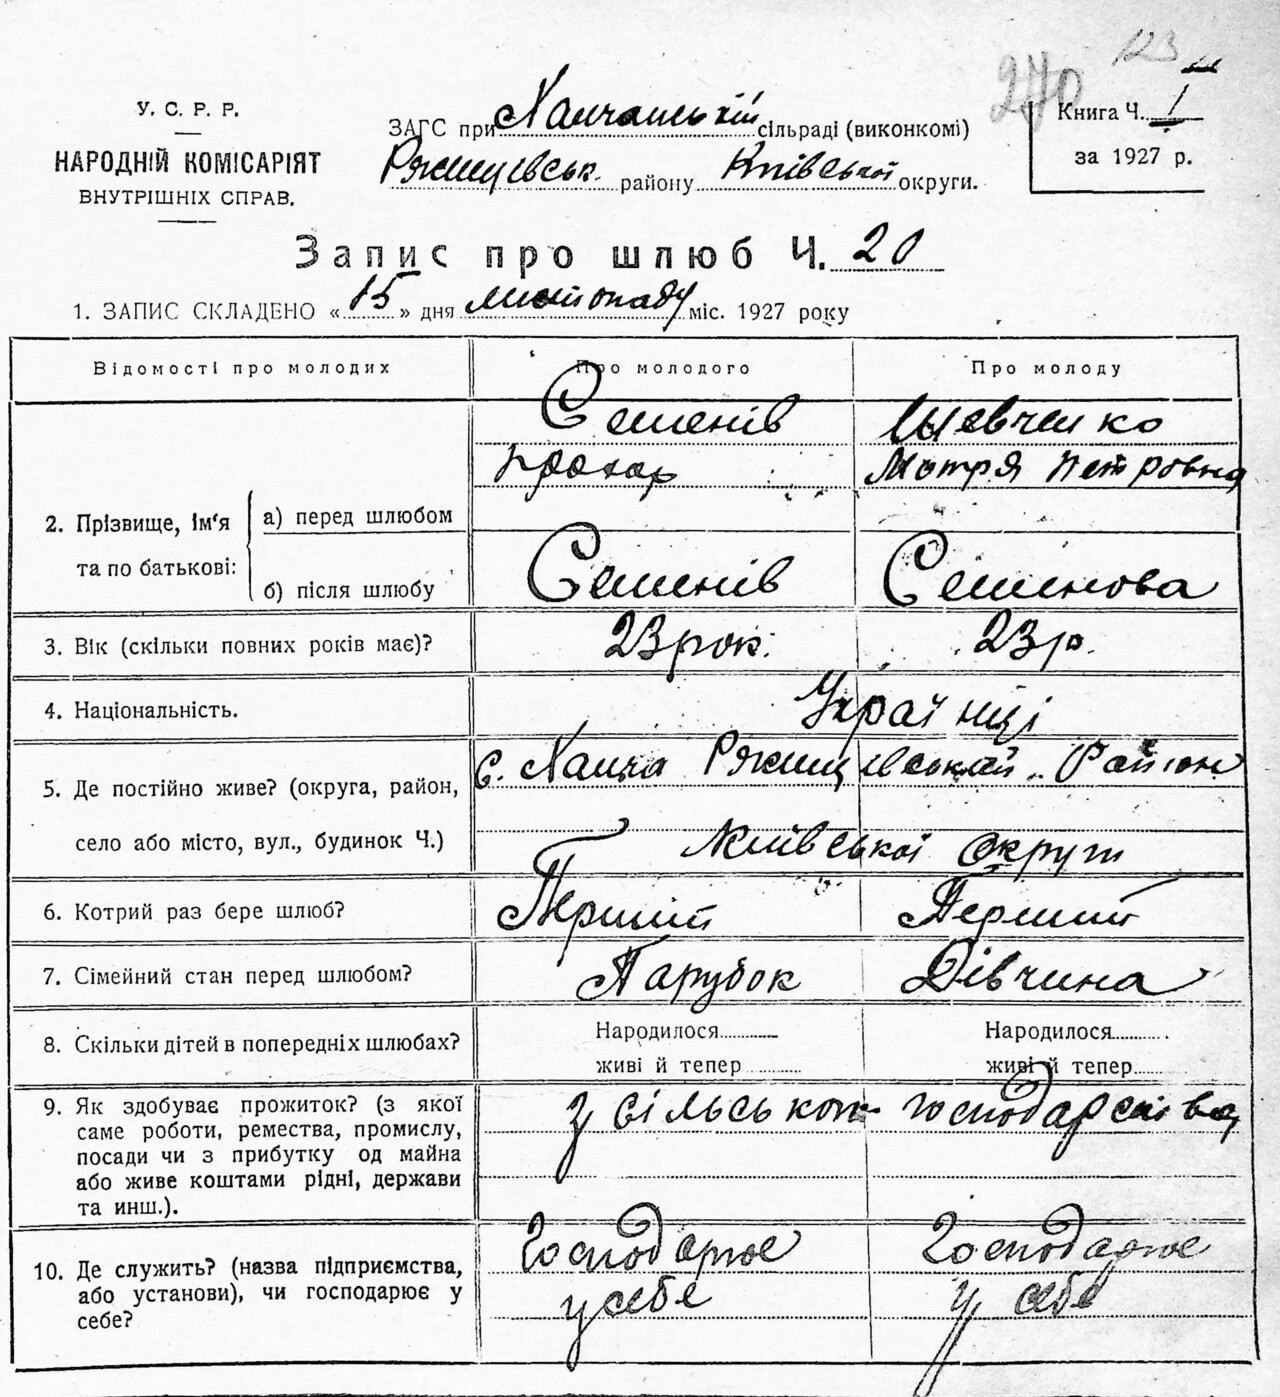 123
270
У. С. Р. Р.
НАРОДНІЙ КОМІСАРІЯТ
ВНУТРІШНІХ СПРАВ.
ЗАГС при Ханчанській сільраді (виконкомі)
Ржищівськ. району Київської округи.
Книга Ч. 1
за 1927 р.
Запис про шлюб Ч. 20
1. ЗАПИС СКЛАДЕНО « 15 » дня листопаду міс. 1927 року
Відомості про молодих
Про молодого
Про молоду
2. Прізвище, ім'я та по батькові:
а) перед шлюбом
Семенів
Прохор
Шевченко
Мотря Петровна
б) після шлюбу
Семенів
Семенова
3. Вік (скільки повних років має)?
23 рок.
23 р.
4. Національність.
Українці
5. Де постійно живе? (округа, район,
село або місто, вул., будинок Ч.)
с. Ханча Ржищівський Район
Київської округи
6. Котрий раз бере шлюб?
Перший
Перший
7. Сімейний стан перед шлюбом?
Парубок
Дівчина
8. Скільки дітей в попередніх шлюбах?
Народилося
живі й тепер
Народилося
живі й тепер
9. Як здобуває прожиток? (з якої
саме роботи, ремества, промислу,
посади чи з прибутку од майна
або живе коштами рідні, держави
та инш.).
з сільськог господарства
10. Де служить? (назва підприємства,
або установи), чи господарює у
себе?
Господарює
у себе
Господарює
у себе